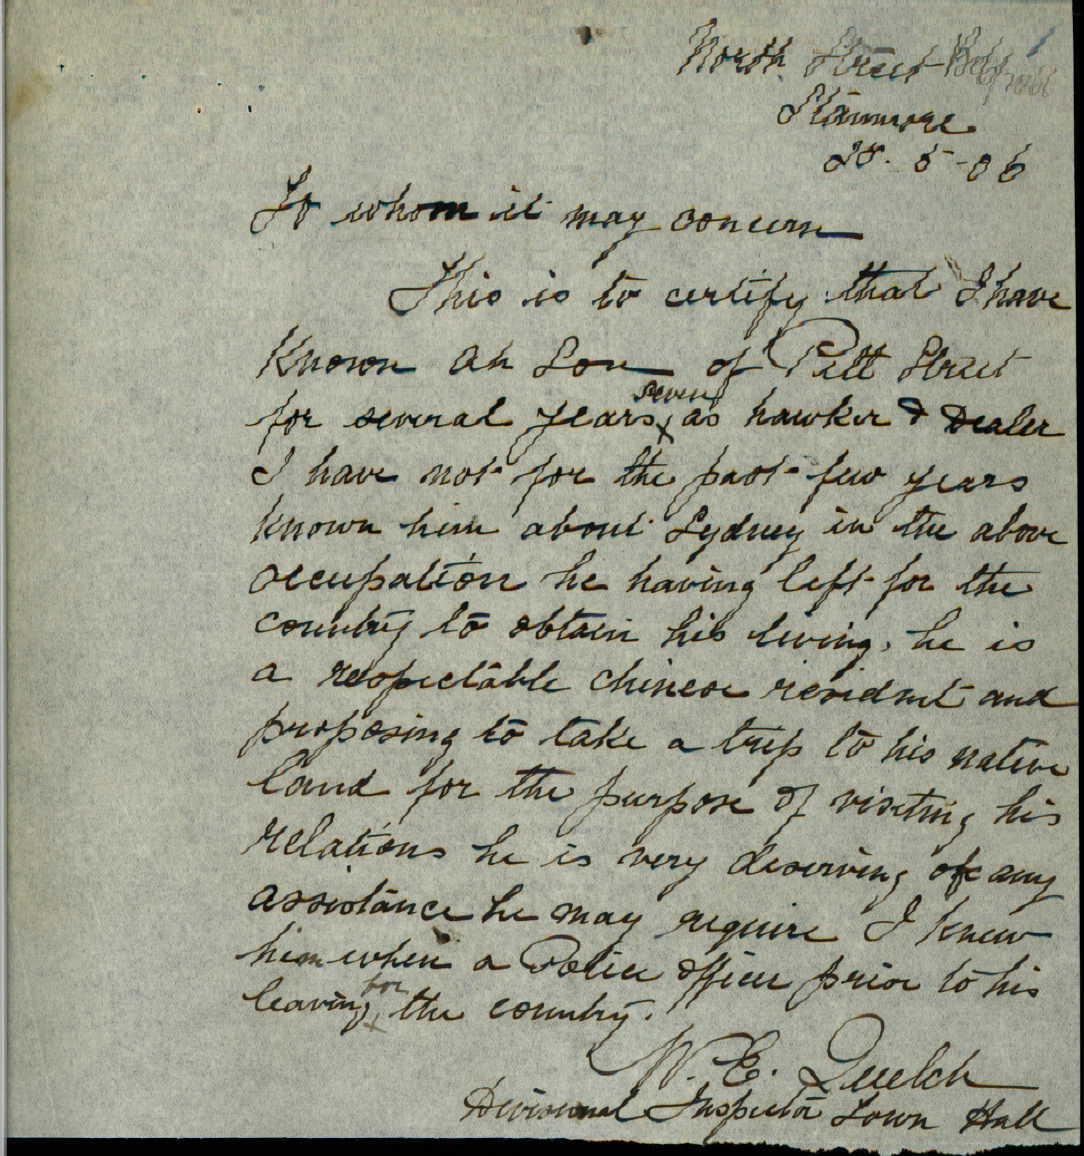 North Street
Stanmore
28. 5-06
To whom it may concern
This is to certify that I have
known Ah Lon of Pitt Street
seven
for several years, as hawker & Dealer
I have not for the past few years
known him about Sydney in the above
occupation he having left for the
country to obtain his living, he is
a respectable chinese resident and
proposing to take a trip to his native
land for the purpose of visiting his
relations he is very deserving of any
assistance he may require I knew
him when a Police officer prior to his
for
leaving the country.
W. E. Quelch
Divisional Inspector Town Hall